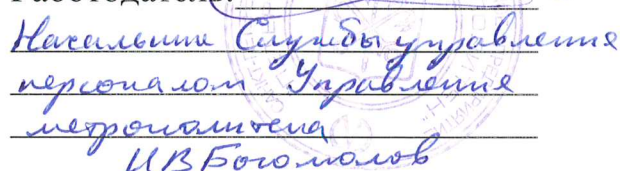 Работодатель:
Начальник Службы управления
персоналом Управления
метрополитена
И В Богомолов